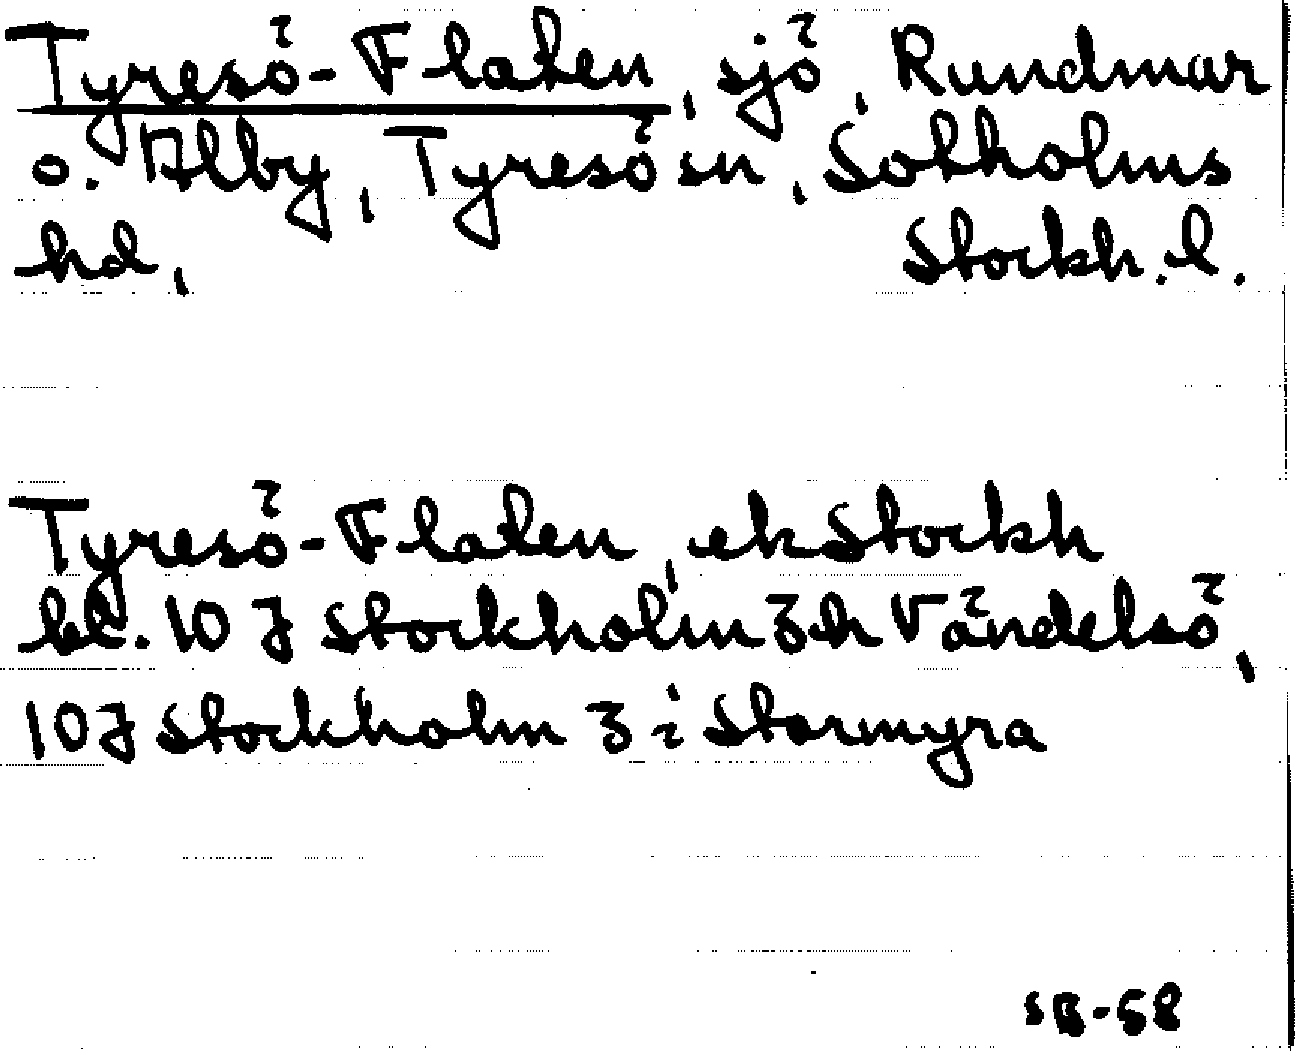 Tyresö-Flaten, sjö, Rundmar
o. Alby, Tyresö sn, Sotholms
hd, Stockh. l.
Tyresö-Flaten, ek Stockh
bl. 10 J Stockholm 3 h Vändelsö,
10 J Stockholm 3 i Stormyra
SB-58